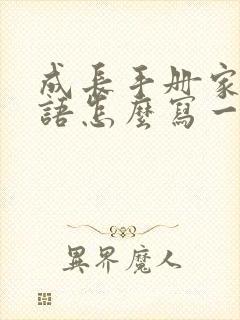 成長手册家
語怎麼寫一
異界魔人